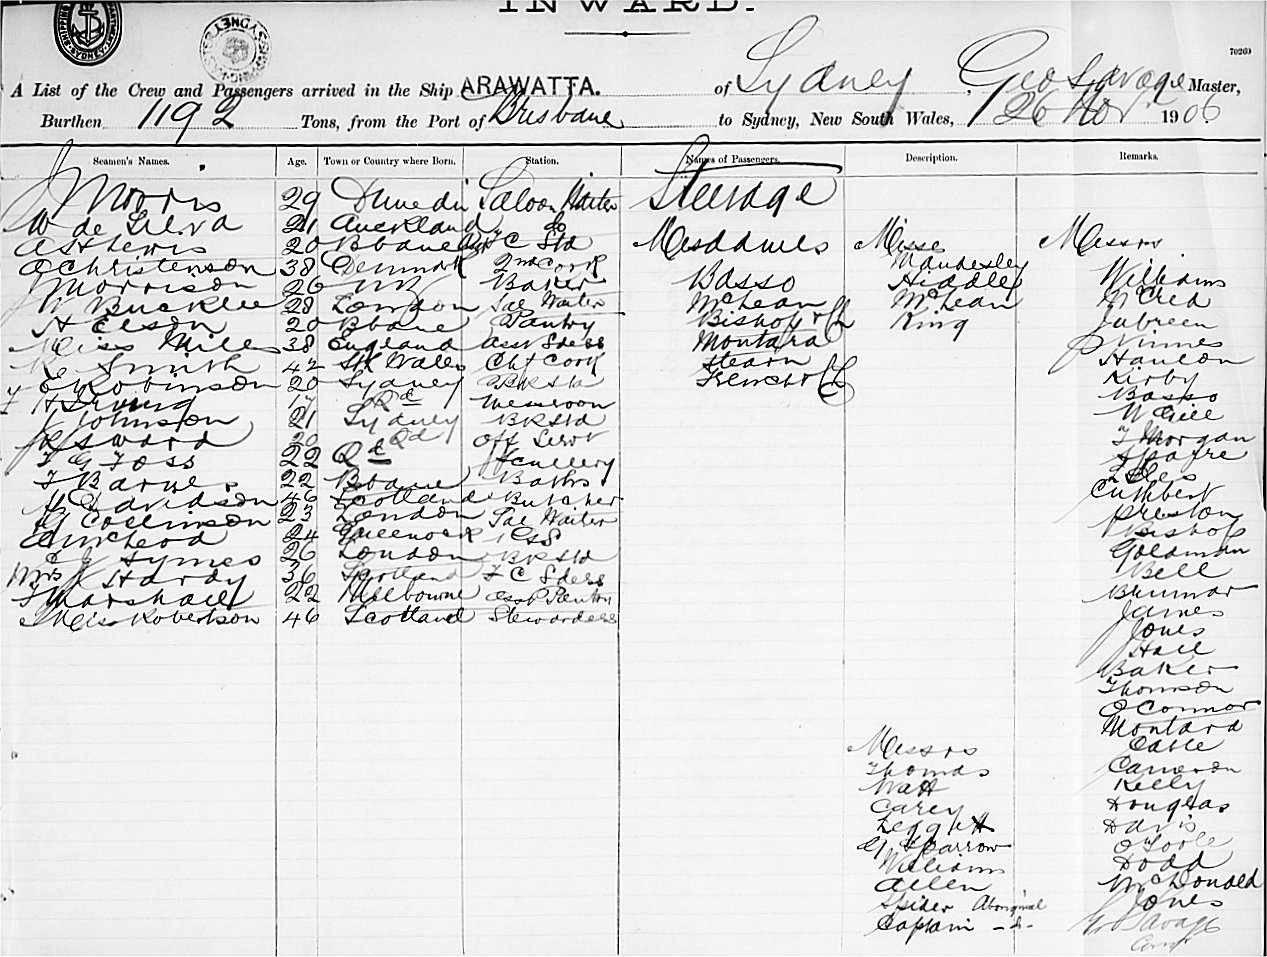 INWARD.
70269
A List of the Crew and Passengers arrived in the Ship ARAWATTA. of Sydney, Geo Savage Master,
Burthen 1192 Tons, from the Port of Brisbane to Sydney, New South Wales, 26 Nov 1906
Seamen's Names. Age. Town or Country where Born. Station. Names of Passengers. Description. Remarks.
J Morris 29 Dunedin Saloon Waiter
W de Silva 21 Auckland do
A St Lewis 20 Bbane F C Std
C Christenson 38 Denmark 2nd Cook
J Morrison 26 Baker
W Bucklee 28 London Sal Waiter
H Elson 20 Bbane Pantry
Miss Miles 38 England Asst Sdess
Smith 42 Wales Chf Cook
Robinson 20 Sydney BR Std
H Irving 17 Qd Messroom
J Johnson 21 Sydney BR Std
Sward 20 Qd Off Servt
F G Foss 22 Qd Scullery
F Barnes 22 Bbane Baths
Davidson 46 Scotland Butcher
G Collinson 23 London Sal Waiter
A McLeod 24 Greenock
E J Hymes 26 London BR Std
Mrs J Hardy 36 Scotland F C Sdess
F Marshall 22 Melbourne Asst Pantry
Miss Robertson 46 Scotland Stewardess
Steerage
Mesdames
Basso
McLean
Bishop & Ch
Montara
Stearn
French & Ch
Misses
Maudesley
Hiddle
McLean
King
Messrs
Thomas
Watt
Carey
Leggett
G Sparrow
Williams
Allen
Spider Aboriginal
Captain - do -
Messrs
Williams
Jubreen
Vinnes
Hanlon
Kirby
Basso
McGill
F Morgan
Cuthbert
Preston
Bishop
Goldman
Bell
Brumar
James
Jones
Hall
Baker
Thomson
O'Connor
Montara
Cable
Cameron
Kelly
Douglas
Davis
O'Toole
Dodd
McDonald
Jones
Geo Savage